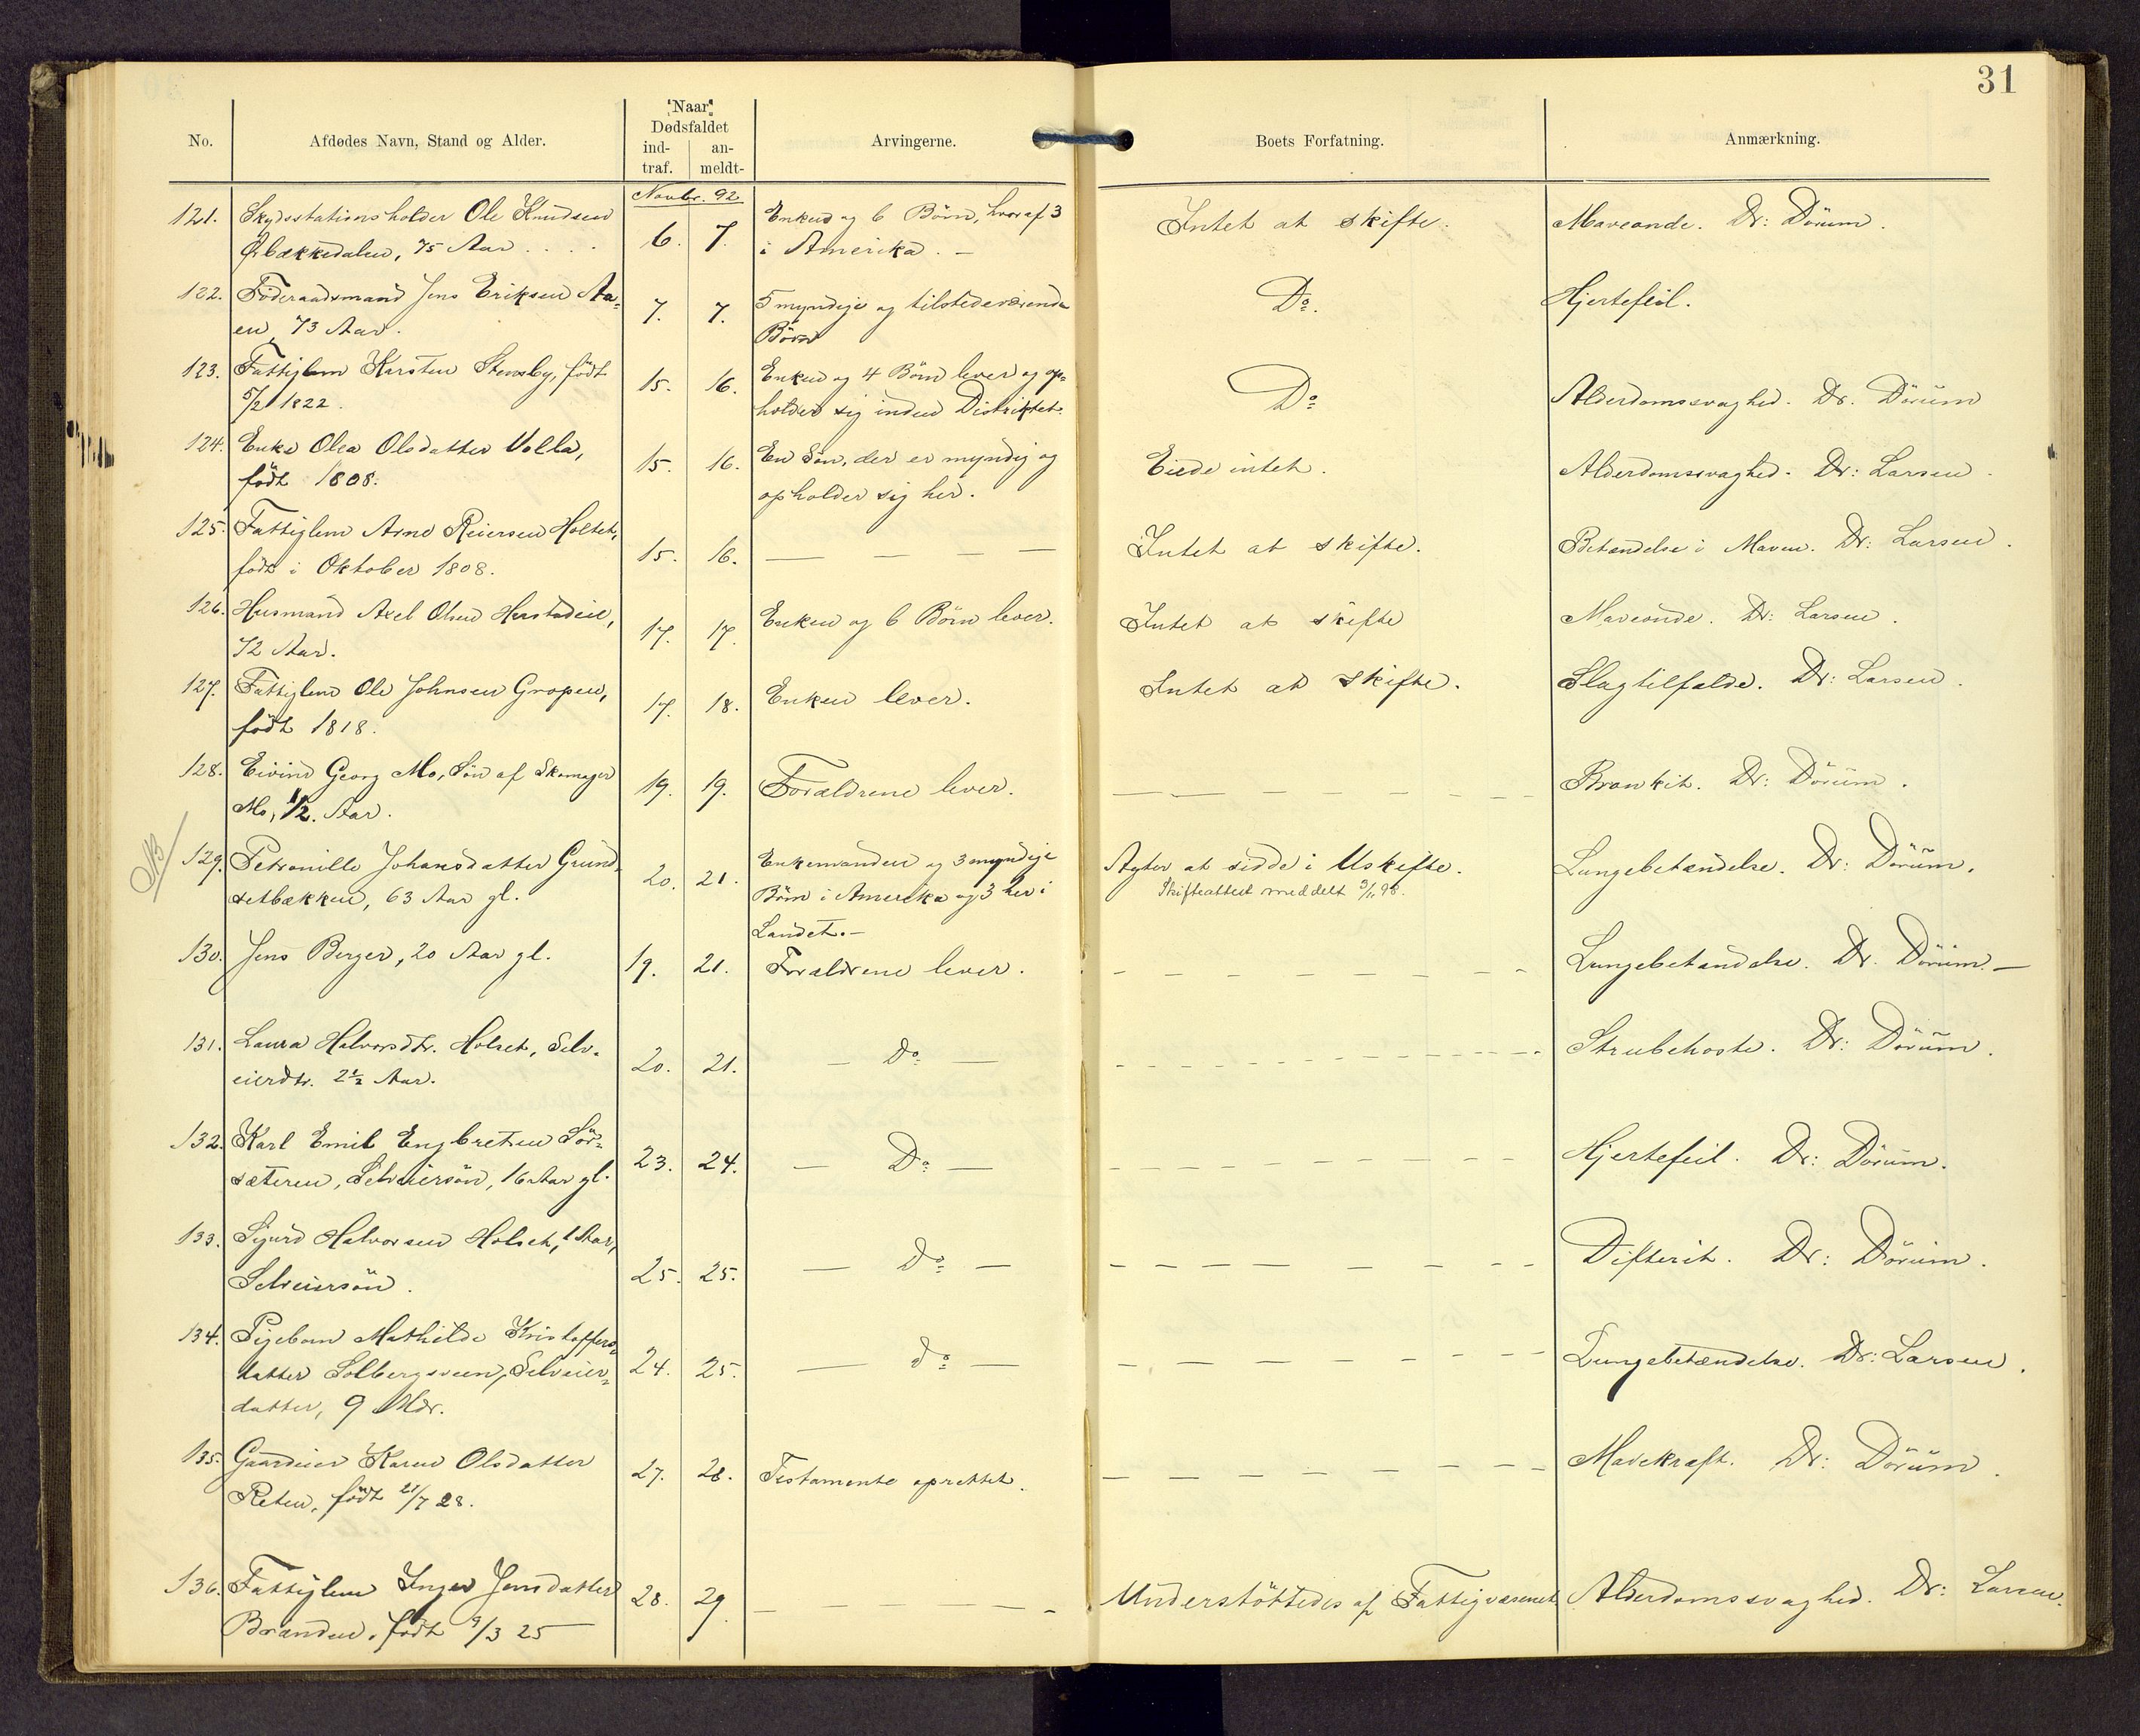 31
No.
Afdødes Navn, Stand og Alder.
"Naar"
Dødsfaldet
ind-
traf.
an-
meldt-
Arvingerne.
Boets Forfatning.
Anmærkning.
Novbr. 92
121. Skydsstationsholder Ole Knudsen Enken og 6 Børn, hvoraf 3 Intet at skifte. Maveonde. Dr: Dörum.
Ørbækkedalen, 75 Aar . . . . 6. 7. i Amerika. —
122. Föderaadsmand Jens Eriksen Aa= 7. 7. 5 myndige og tilstedeværende Do. Hjertefeil.
en, 73 Aar. Börn
123. Fattiglem Karsten Stensby, født 15. 16. Enken og 4 Börn lever og op= Do Alderdomssvaghed. Dr. Dörum
5/2 1822. holder sig inden Distriktet.
124. Enke Olea Olsdatter Volla, 15. 16. En Sön, der er myndig og Eiede intet. Alderdomssvaghed. Dr: Larsen
født 1808. opholder sig her.
125. Fattiglem Arne Reiersen Holtet, 15. 16. — — — — Intet at skifte. Betændelse i Maven. Dr: Larsen.
født i Oktober 1808.
126. Husmand Axel Olsen 17. 17. Enken og 6 Börn lever. Intet at skifte Maveonde. Dr: Larsen.
72 Aar.
127. Fattiglem Ole Johnsen Gropen, 17. 18. Enken lever. Intet at skifte. Slagtilfælde. Dr: Larsen.
født 1818.
128. Eivind Georg Mo, Sön af Skomager 19. 19. Forældrene lever. — — — — — — Bronkit. Dr: Dörum.
Mo, 1/2. Aar.
NB
129. Petronille Johansdatter Grund= 20. 21. Enkemanden og 3 myndige Agter at sidde i Uskifte. Lungebetændelse. Dr: Dörum.
setbækken, 63 Aar gl. Börn i Amerika og 3 her i Skifteattest meddelt 3/11 98.
Landet.—
130. Jens Berger, 20 Aar gl. 19. 21. Forældrene lever. — — — — — — Lungebetændelse. Dr. Dörum.—
131. Laura Halvorsdtr. Holset, Selv= 20. 21. — Do — — — — — — — Strubehoste. Dr: Dörum.
eierdtr. 2½ Aar.
132. Karl Emil Engbretsen Sör= 23. 24. — Do — — — — — — — Hjertefeil. Dr: Dörum.
sæteren, Selveiersön, 16 Aar gl.
133. Sigurd Halvorsen Holset, 1 Aar, 25. 25. — Do — — — — — — — Difterit. Dr: Dörum.
Selveiersön.
134. Pigebarn Mathilde Kristoffers= 24. 25. — do — — — — — — — Lungebetændelse. Dr: Larsen.
datter Solbergsveen, Selveier=
datter, 9 Mdr.
135. Gaardeier Karen Olsdatter 27. 28. Testamente oprettet. — — — — — — Mavekræft. Dr: Dörum.
Reten, født 21/7 28.
136. Fattiglem Inger Jensdatter 28. 29 — — — — — Understöttedes af Fattigvæsenet Alderdomssvaghed. Dr: Larsen.
Brænden, født 9/3 25 —